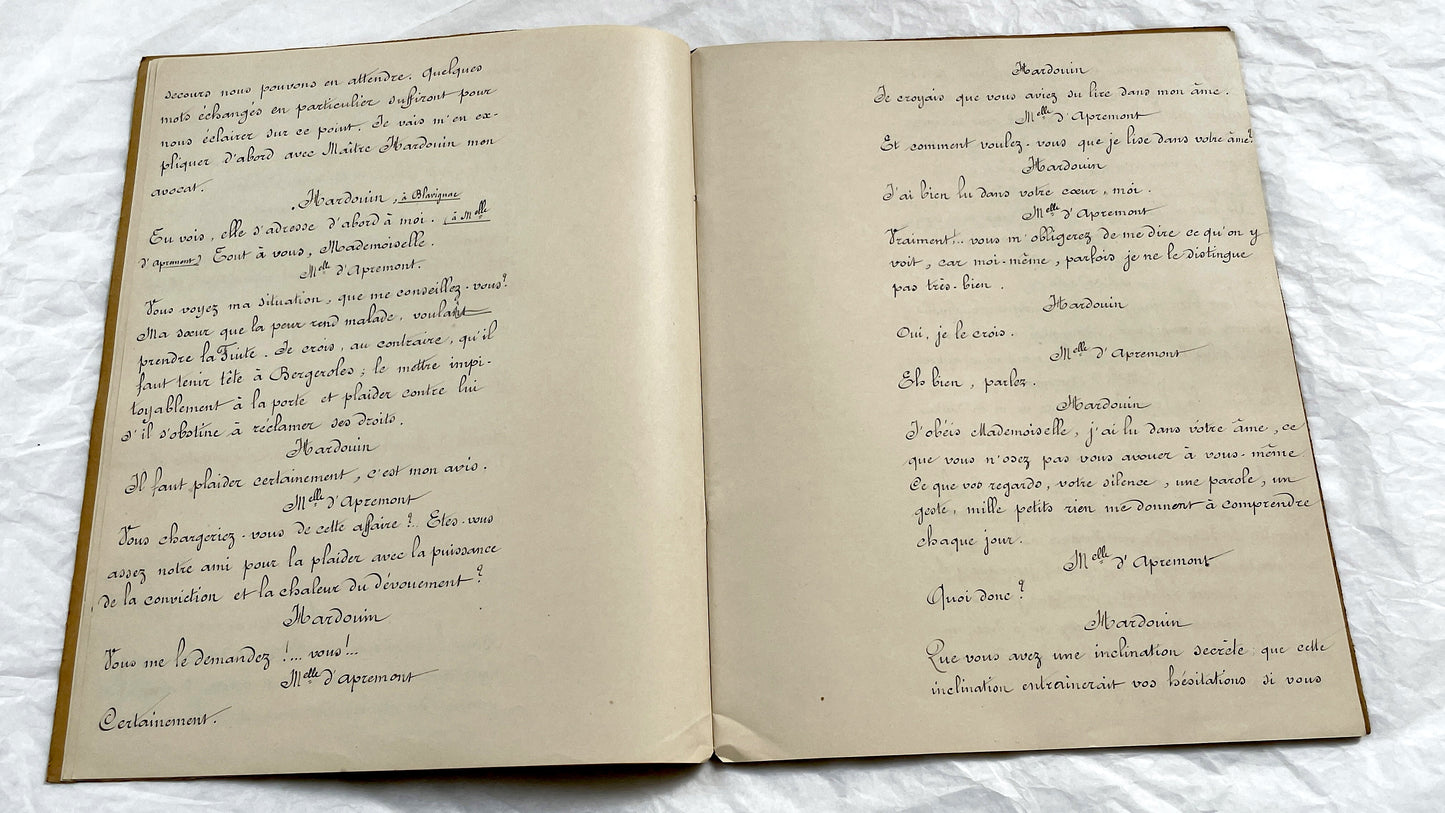 secours nous pouvons en attendre. Quelques
mots échangés en particulier suffiront pour
nous éclairer sur ce point. Je vais m'en ex-
pliquer d'abord avec Maître Hardouin mon
avocat.
Hardouin, à Blavignac
Tu vois, elle s'adresse d'abord à moi. (à Melle
d'Apremont) Tout à vous, Mademoiselle.
Melle d'Apremont.
Vous voyez ma situation, que me conseillez-vous?
Ma sœur que la peur rend malade, voulait
prendre la Fuite. Je crois, au contraire, qu'il
faut tenir tête à Bergeroles; le mettre impi-
toyablement à la porte et plaider contre lui
s'il s'obstine à réclamer ses droits.
Hardouin
Il faut plaider certainement, c'est mon avis.
Melle d'Apremont
Vous chargeriez-vous de cette affaire?.. Etes-vous
assez notre ami pour la plaider avec la puissance
de la conviction et la chaleur du dévouement?
Hardouin
Vous me le demandez!... vous!...
Melle d'Apremont
Certainement.
Hardouin
Je croyais que vous aviez su lire dans mon âme.
Melle d'Apremont
Et comment voulez-vous que je lise dans votre âme?
Hardouin
J'ai bien lu dans votre cœur, moi.
Melle d'Apremont
Vraiment!.. vous m'obligerez de me dire ce qu'on y
voit, car moi-même, parfois je ne le distingue
pas très-bien.
Hardouin
Oui, je le crois.
Melle d'Apremont
Eh bien, parlez.
Hardouin
J'obéis Mademoiselle, j'ai lu dans votre âme, ce
que vous n'osez pas vous avouer à vous-même
Ce que vos regards, votre silence, une parole, un
geste, mille petits rien me donnent à comprendre
chaque jour.
Melle d'Apremont
Quoi donc?
Hardouin
Que vous avez une inclination secrète: que cette
inclination entrainerait vos hésitations si vous